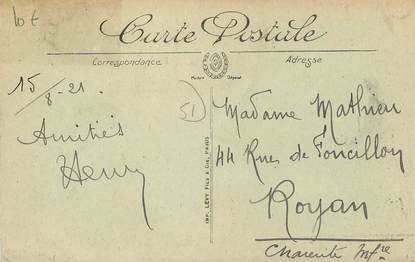 lot
Carte Postale
Correspondance
Adresse
Modèle Déposé
15/8-21.
Amitiés
Henry
51
IMP. LÉVY FILS & CIE, PARIS
Madame Mathieu
44 Rue de Foncillon
Royan
Charente Infre